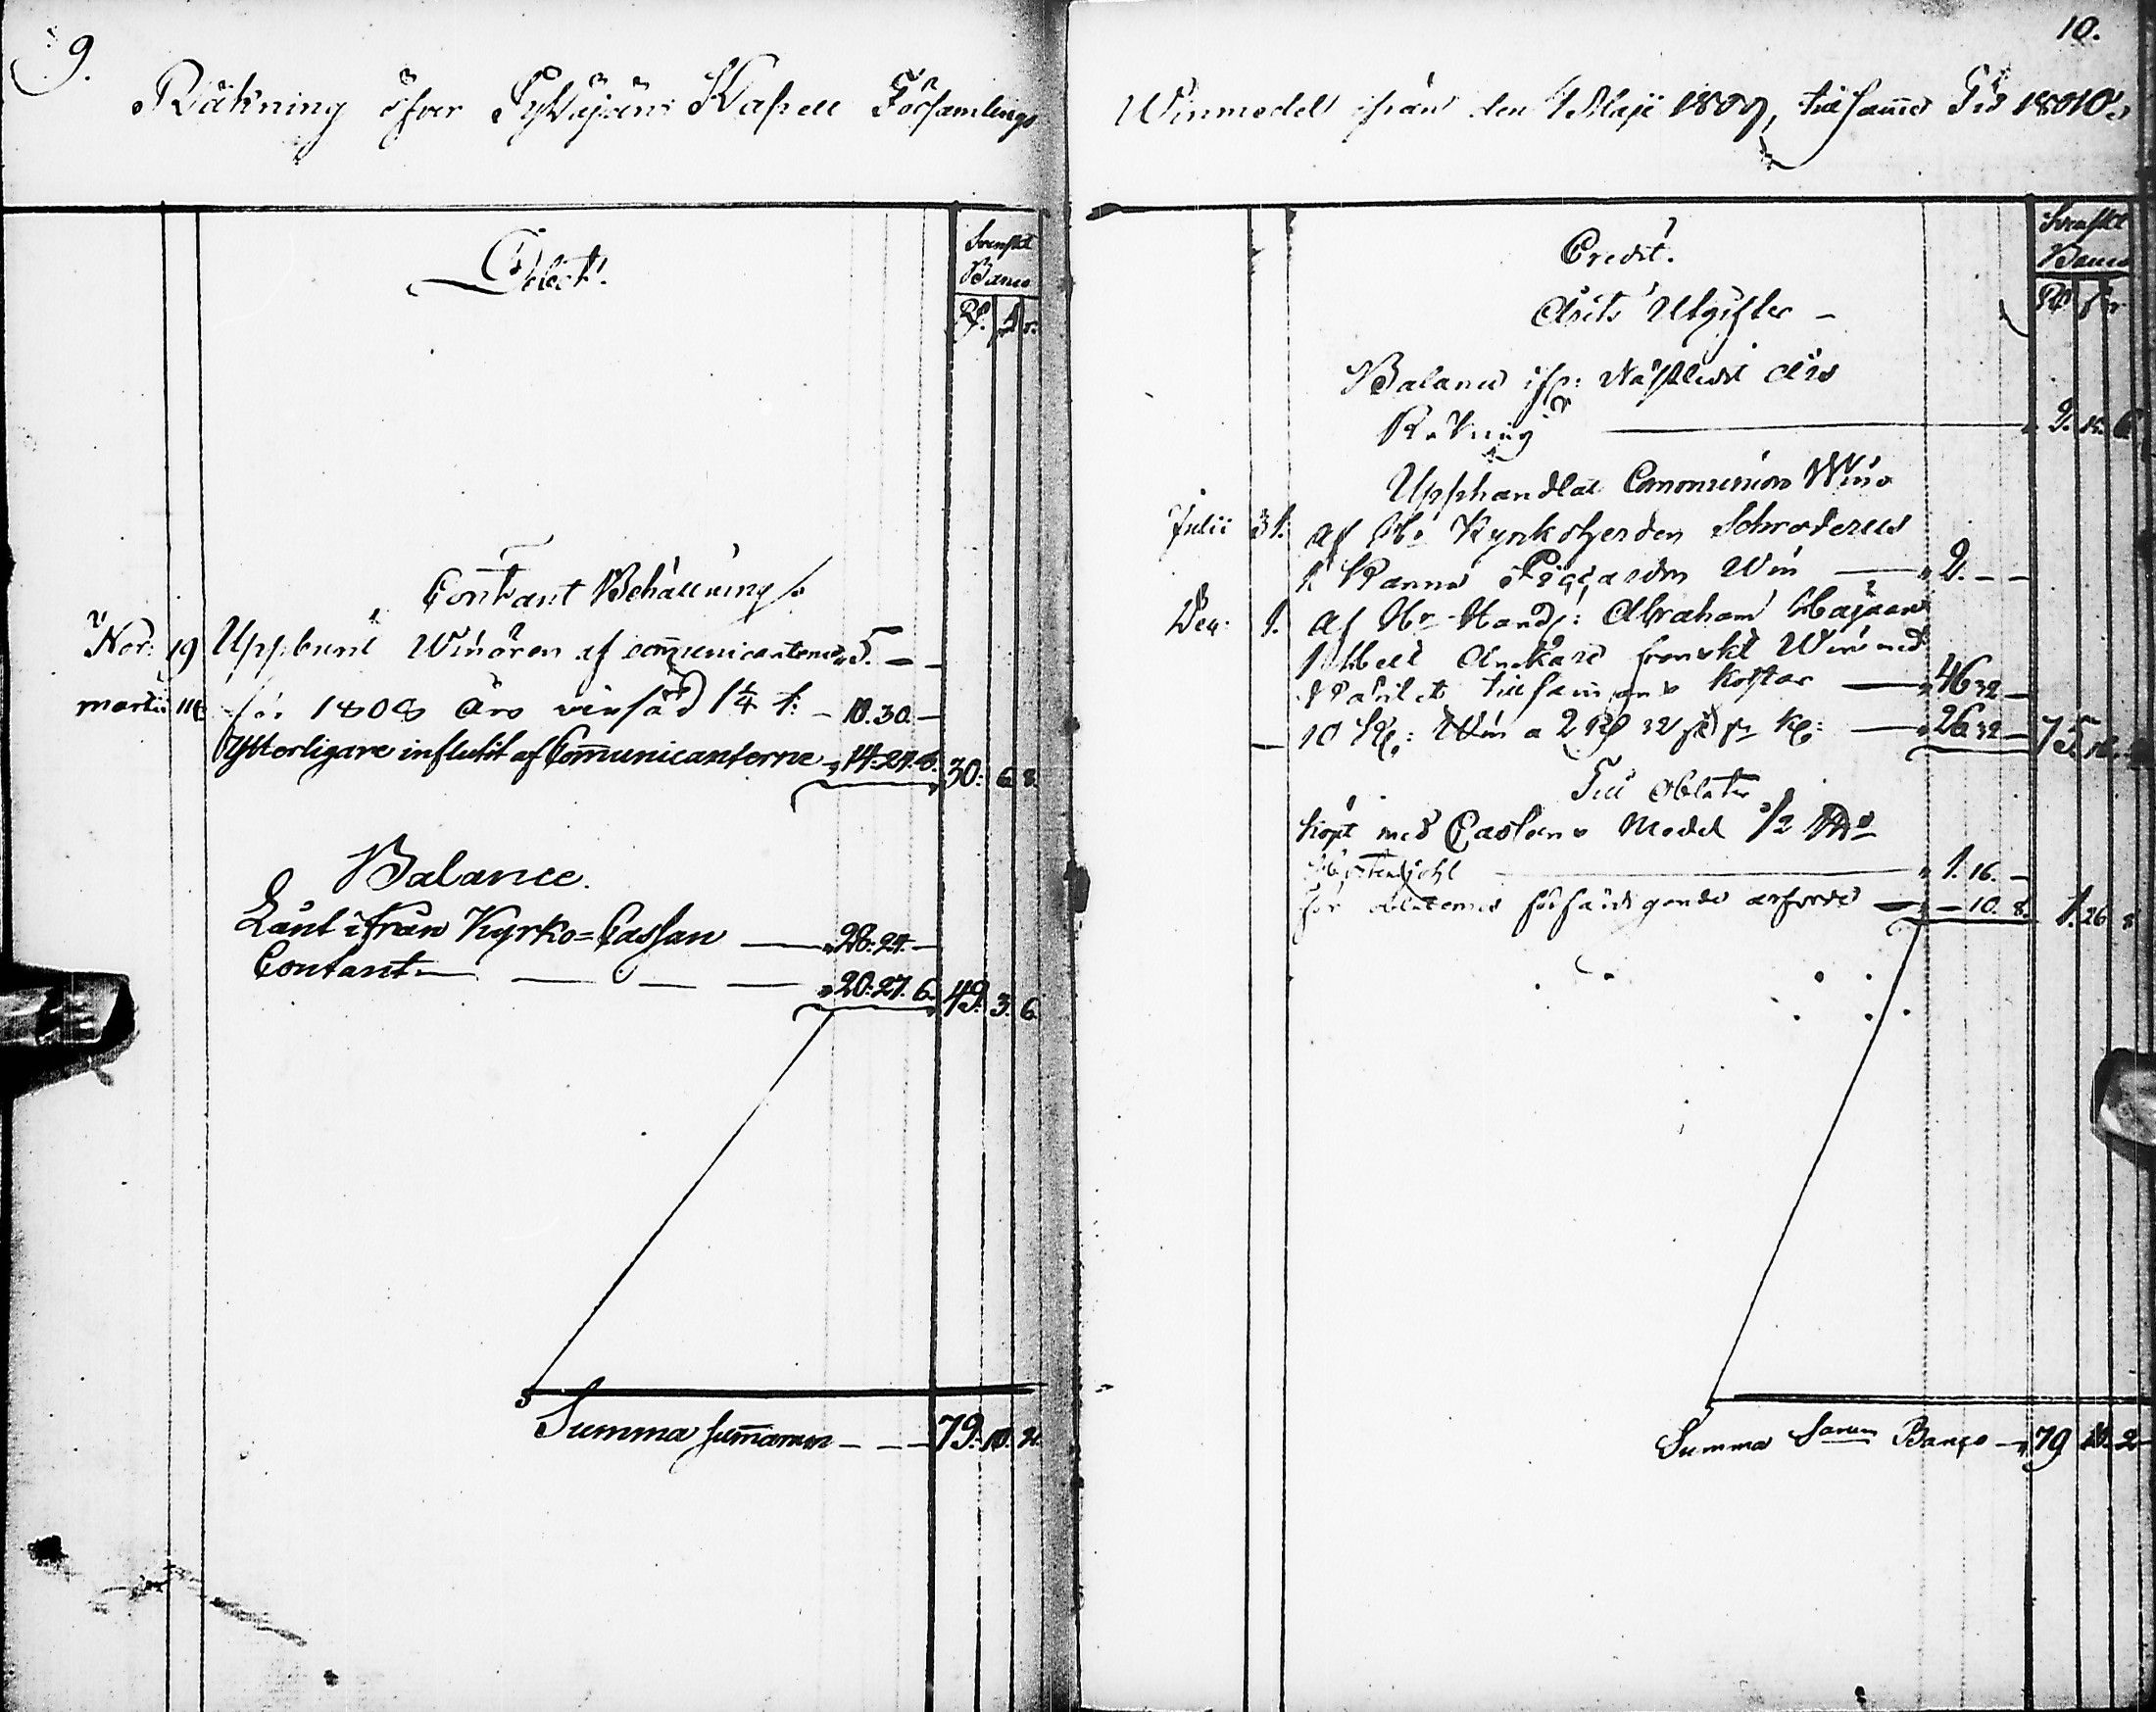 9.
Räkning öfver Kapell Församlings
Debet.
Svenskt
Banco
Rd. s. r.
Contant Behållning
Nov: 19 Uppburit Winören af communicanterne 5. - -
martii 18 för 1808 års vinsäd 1 1/4 t: - 10.30. -
Ytterligare influtit af Communicanterne 14.24.8. 30: 6. 8.
Balance.
Lånt ifrån Kyrko=Cassan 28:24. -
Contant 20:27. 6. 49. 3. 6.
Summa summarum - - - 79. 10. 2.
10.
Winmedel ifrån den 1 Maji 1809, till samma Tid 1810.
Svenskt
Banco
Rd s r
Credit.
Årets Utgifter -
Balance ifr: Näslledit års
Räkning 2. 15. 6
Upphandlat Communion Win
Julii 31. af Hr Kyrkoherden Schroderus
1 Kanna Win 2. - -
Dec. 1. af Hr Handl: Abraham
1 Helt Ankare franskt Win med
tillsammans kostar 46 32 -
10 K: Win a 2 Rd 32 s pr K: 26 32 - 75 16 -
Till Oblater
köpt med Cassans Medel 1/2
1. 16. -
för oblaternes förfärdigande - 10. 8. 1. 26 8
Summa Sarum Banco 79 10. 2